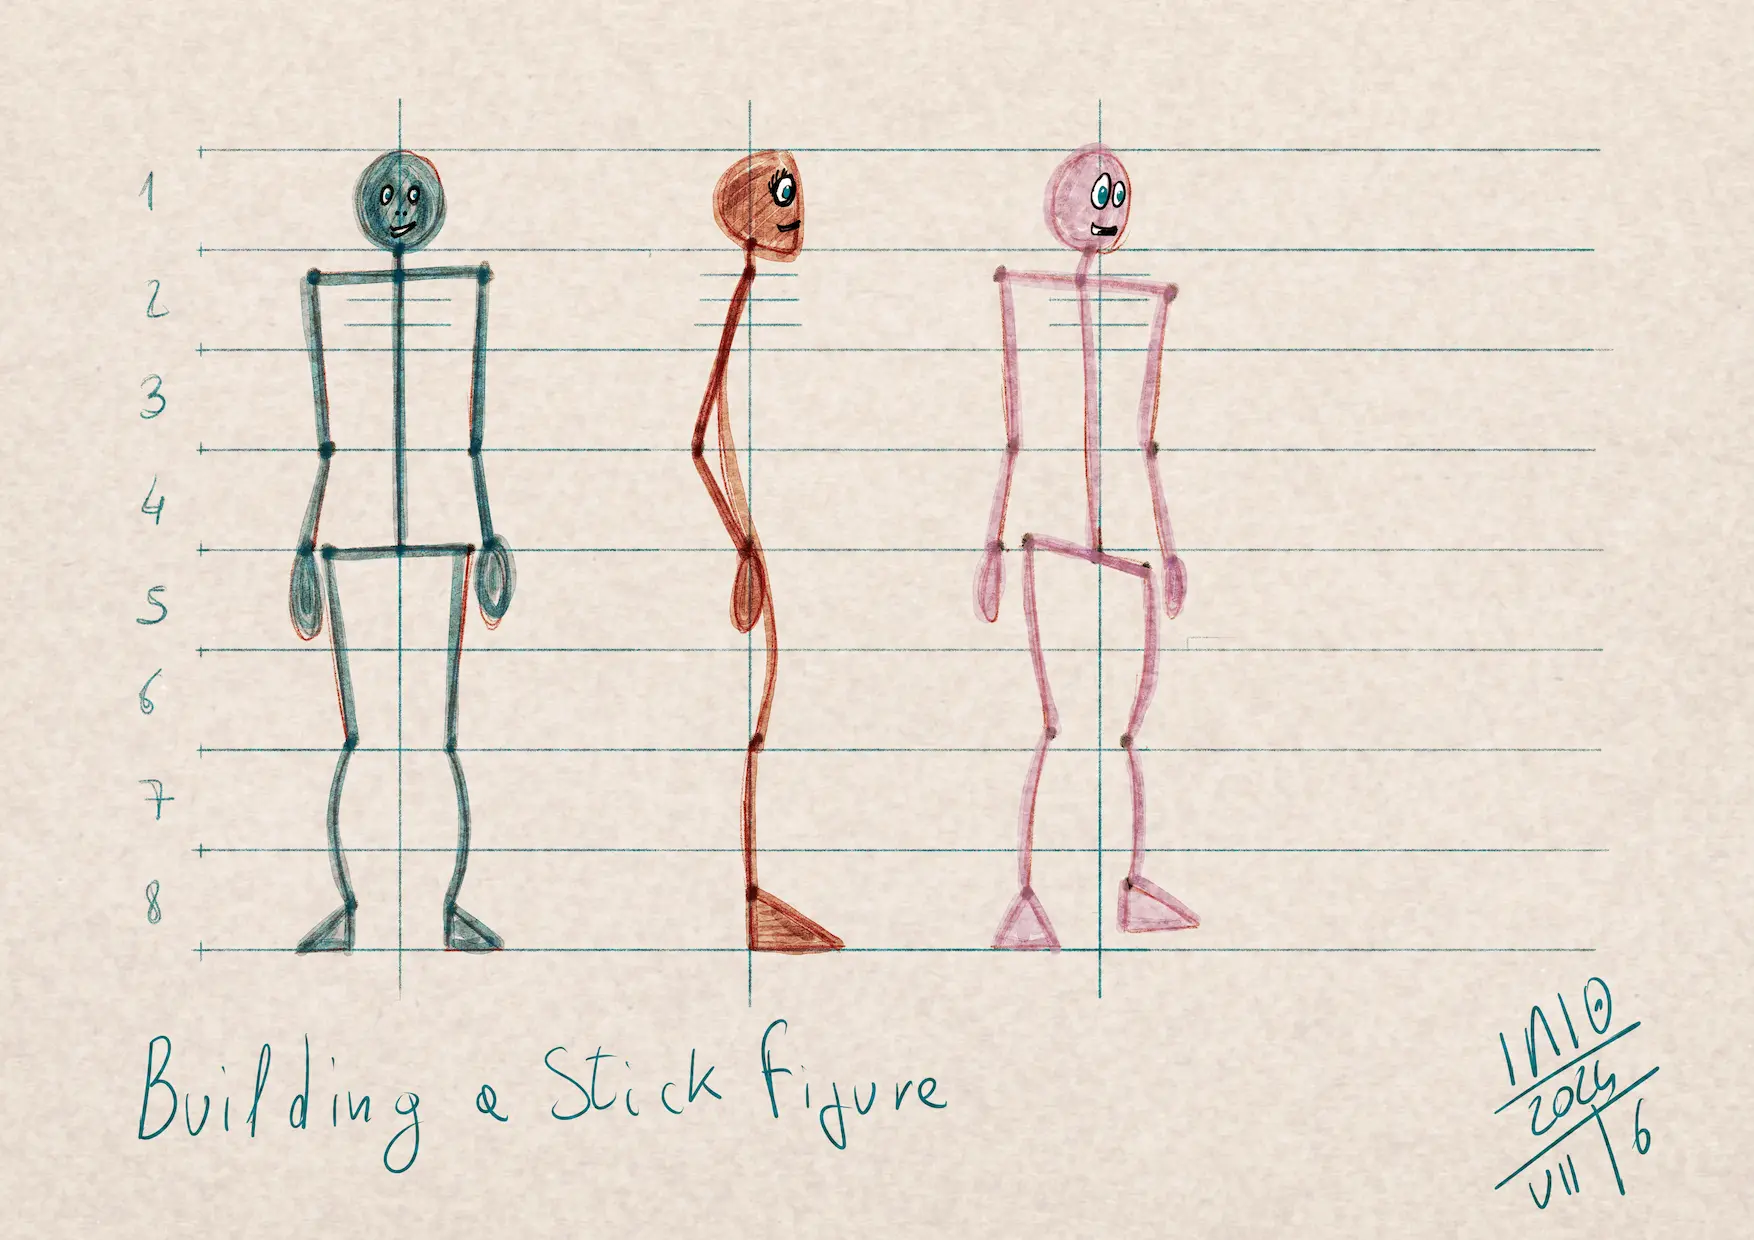 1
2
3
4
5
6
7
8
Building a Stick Figure
INIO
2024
VII 6